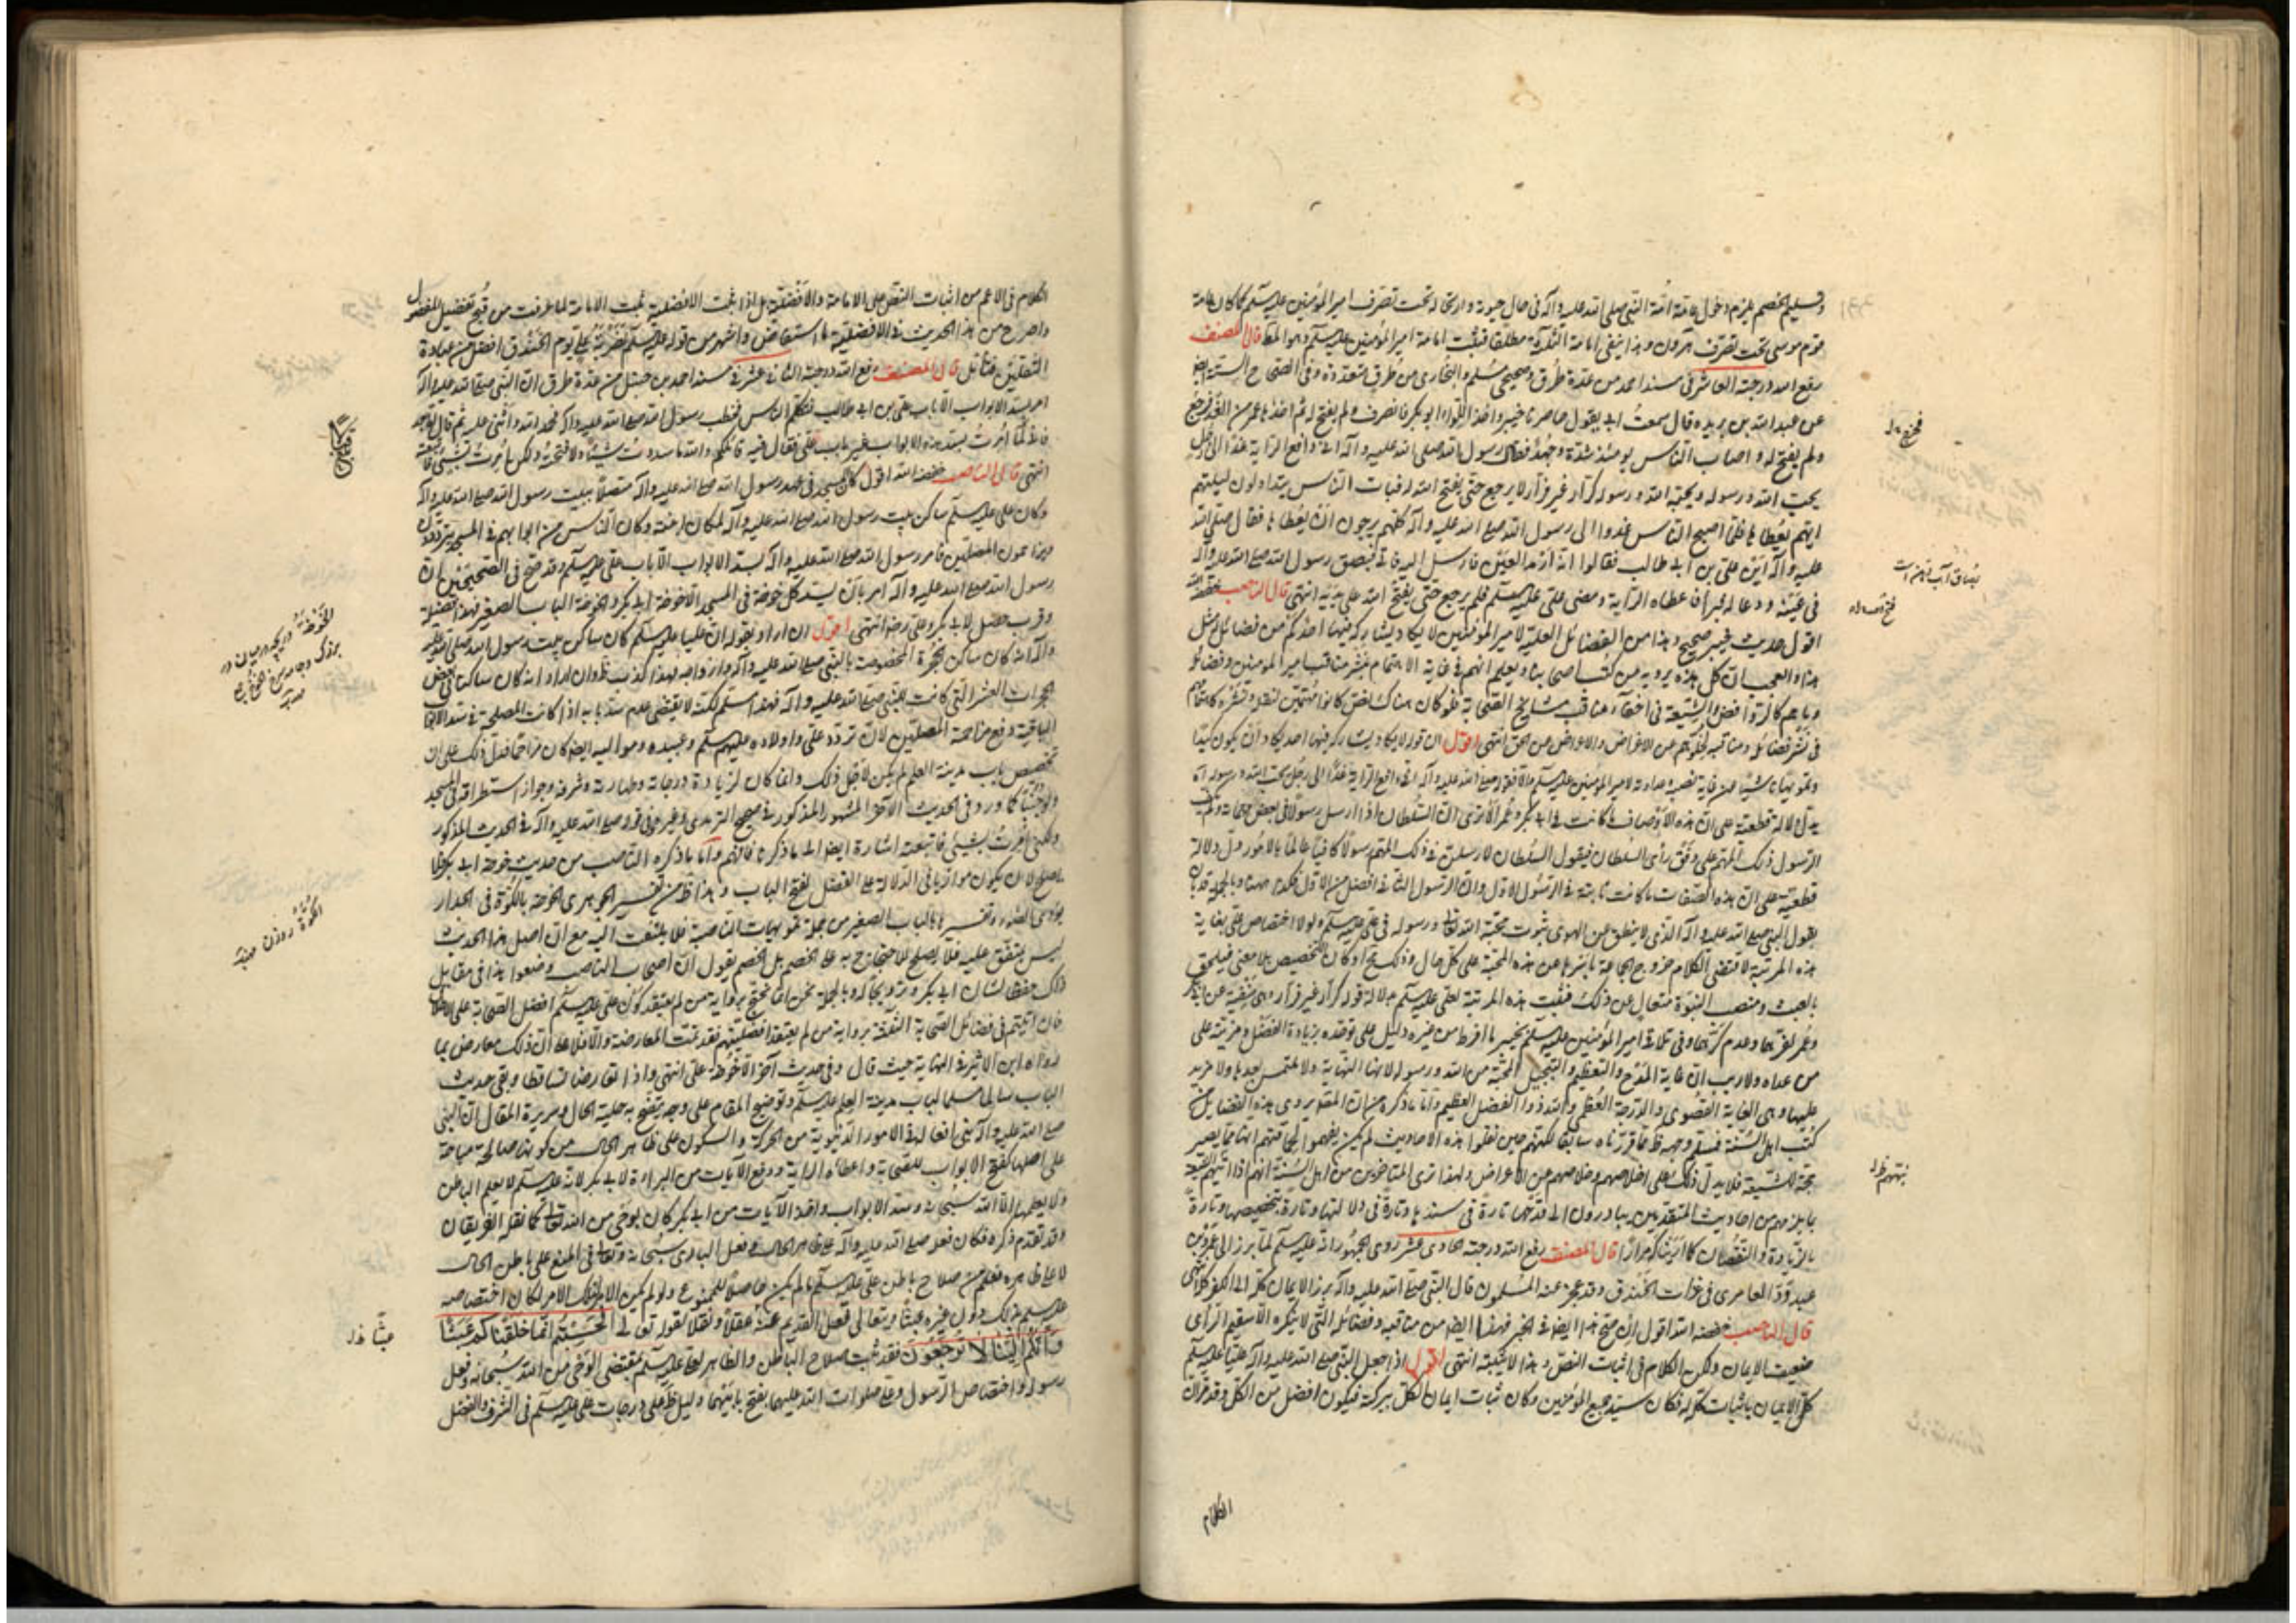 وتسليم الخصم يلزم دخول عامة امة النبي صلى الله عليه وآله في حال حيوته وارتحاله تحت تصرف امير المؤمنين عليه السلام كما كان عامة
قوم موسى تحت تصرف هرون وهذا ينفي امامة الثلاثة مطلقا فثبت امامة امير المؤمنين عليه السلام وهو المط قال المصنف
رفع الله درجته العاشر في مسند احمد من عدة طرق وصحيحي مسلم والبخاري من طرق متعددة وفي الصحاح الستة ايضا
عن عبد الله بن بريده قال سمعت ابي يقول حاصرنا خيبر واخذ اللواء ابو بكر فانصرف ولم يفتح له ثم اخذها عمر من الغد فرجع
ولم يفتح له واصاب الناس يومئذ شدة وجهد فقال رسول الله صلى الله عليه وآله اني دافع الراية غدا الى رجل
يحب الله ورسوله ويحبه الله ورسوله كرار غير فرار لا يرجع حتى يفتح الله له فبات الناس يتداولون ليلتهم
ايهم يعطاها فلما اصبح الناس غدوا الى رسول الله صلى الله عليه وآله كلهم يرجون ان يعطاها فقال صلى الله
عليه وآله اين علي بن ابي طالب فقالوا انه ارمد العين فارسل اليه فاتى فبصق رسول الله صلى الله عليه وآله
في عينيه ودعا له فبرأ فاعطاه الراية ومضى علي عليه السلام فلم يرجع حتى يفتح الله على يديه انتهى قال الناصب خفضه الله
اقول حديث خيبر صحيح وهذا من الفضائل العلية لامير المؤمنين لا يكاد يشاركه فيها احد وكم من فضائل مثل
هذا والعجب ان كل هذه يرويه من كتب اصحابنا ويعلم انهم في غاية الاهتمام بنشر مناقب امير المؤمنين وفضائله
وما هم كالروافض والشيعة في اخفاء مناقب مشايخ الصحابة فلو كان هناك نص كانوا مهتمين لنقله ونشره كاهتمامهم
في نشر فضائله ومناقبه لخلوهم من الاغراض والاعراض عن الحق انتهى اقول ان قوله لا يكاد يشاركه فيها احد يكاد ان يكون كيدا
وتمويها ناشيا من غاية نصبه وعداوته لامير المؤمنين عليه السلام والا فقوله صلى الله عليه وآله اني دافع الراية غدا الى رجل يحب الله ورسوله اه
يدل دلالة قطعية على ان هذه الاوصاف ما كانت في ابي بكر وعمر الا ترى ان السلطان اذا ارسل رسولا في بعض مهماته ولم يكف
الرسول ذلك المهم على وفق رأي السلطان فيقول السلطان لارسلن في ذلك المهم رسولا كافيا عالما بالامور دل دلالة
قطعية على ان هذه الصفات ما كانت ثابتة في الرسول الاول وان الرسول الثاني افضل من الاول فكذا ههنا وبالجملة قد بان
بقول النبي صلى الله عليه وآله الذي لا ينطق عن الهوى ثبوت محبة الله تعالى ورسوله في علي عليه السلام ولولا اختصاص علي بغاية
هذه المرتبة لاقتضى الكلام خروج الجماعة باسرها عن هذه المحبة على كل حال وذلك محال او كان التخصيص بلا معنى فيلحق
بالعبث ومنصب النبوة متعال عن ذلك فثبت هذه المرتبة لعلي عليه السلام بدلالة قوله كرار غير فرار وهي منفية عن ابي بكر
وعمر لفرهما وعدم كرهما وفي تلافي امير المؤمنين عليه السلام بخيبر ما افرط من غيره دليل على توحده بزيادة الفضل ومزيته على
من عداه ولا ريب ان غاية المدح والتعظيم والتبجيل المحبة من الله ورسوله لانها النهاية ولا ملتمس بعدها ولا مزيد
عليها وهي الغاية القصوى والدرجة العظمى والله ذو الفضل العظيم واما ما ذكره من ان المصنف يروي هذه الفضائل من
كتب اهل السنة فسلم وجهه ظ مما قررناه سابقا لكنهم حين نقلوا هذه الاحاديث لم يكن يفهموا لحماقتهم انها مما يصير
حجة للشيعة فلا يدل ذلك على اخلاصهم وخلاصهم عن الاعراض ولهذا ترى المتاخرين من اهل السنة انهم اذا نبههم الشيعة
بما يلزمهم من احاديث المتقدمين يبادرون الى قدحها تارة في سندها وتارة في دلالتها وتارة بتخصيصها وتارة
بالزيادة والنقصان كما اريناكه مرارا قال المصنف رفع الله درجته الحادي عشر روى الجمهور انه عليه السلام لما برز الى عمرو بن
عبد ود العامري في غزات الخندق وقد عجز عنه المسلمون قال النبي صلى الله عليه وآله برز الايمان كله الى الكفر كله انتهى
قال الناصب خفضه الله اقول ان صح هذا ايضا في الخبر فهذا ايضا من مناقبه وفضائله التي لا ينكره الا سقيم الرأي
ضعيف الايمان ولكن الكلام في اثبات النص وهذا لا يثبته انتهى اقول اذا جعل النبي صلى الله عليه وآله عليا عليه السلام
كل الايمان باثبات كله له فكان سيد جميع المؤمنين وكان ثبات ايمان الكل ببركته فيكون افضل من الكل وقد مر ان
الكلام
بصاق آب دهن است
الكلام في الاعم من اثبات النص على الامامة والافضلية بل اذا ثبت الافضلية ثبت الامامة لما عرفت من قبح تفضيل المفضول
واصرح من هذا الحديث في الافضلية ما استفاض واشتهر من قوله عليه السلام لضربة علي يوم الخندق افضل من عبادة
الثقلين فتأمل قال المصنف رفع الله درجته الثاني عشر في مسند احمد بن حنبل من عدة طرق ان النبي صلى الله عليه وآله
امر بسد الابواب الا باب علي بن ابي طالب فتكلم الناس فخطب رسول الله صلى الله عليه وآله فحمد الله واثنى عليه ثم قال اما بعد
فاني لما امرت بسد هذه الابواب غير باب علي فقال فيه قائلكم والله ما سددت شيئا ولا فتحته ولكن امرت بشيء فاتبعته
انتهى قال الناصب خفضه الله اقول كان المسجد في عهد رسول الله صلى الله عليه وآله متصلا ببيت رسول الله صلى الله عليه وآله
وكان علي عليه السلام ساكن بيت رسول الله صلى الله عليه وآله لمكان ابنته وكان الناس من ابوابهم في المسجد يترددون
ويزاحمون المصلين فامر رسول الله صلى الله عليه وآله بسد الابواب الا باب علي عليه السلام وقد صح في الصحيحين ان
رسول الله صلى الله عليه وآله امر بان يسد كل خوخة في المسجد الا خوخة ابي بكر والخوخة الباب الصغير فهذا فضيلة
وقرب حصل لابي بكر وعلي رض انتهى اقول ان اراد بقوله ان عليا عليه السلام كان ساكن بيت رسول الله صلى الله عليه
وآله انه كان ساكن الحجرة المخصوصة بالنبي صلى الله عليه وآله وازواجه فهذا كذب ظ وان اراد انه كان ساكنا في بعض
حجرات العشر التي كانت للنبي صلى الله عليه وآله فهذا مسلم لكنه لا يقتضي عدم سد بابه اذا كانت المصلحة في سد الابواب
الباقية دفع مزاحمة المصلين لان تردد علي واولاده عليهم السلام وعبيده ومواليه ايضا كان مزاحما فدل ذلك على ان
تخصيص باب مدينة العلم لم يكن لاجل ذلك وانما كان لزيادة درجاته وطهارته وشرفه وجواز استطراقه في المسجد
ولو جنبا كما ورد في الحديث الآخر المشهور المذكور في صحيح الترمذي وغيره وفي قوله صلى الله عليه وآله في الحديث المذكور
ولكني امرت بشيء فاتبعته اشارة ايضا الى ما ذكرنا فافهم واما ما ذكره الناصب من حديث خوخة ابي بكر فلا
يصلح لان يكون موازيا في الدلالة على الفضل لفتح الباب وهذا ظ من تفسير الجوهري الخوخة بالكوة في الجدار
يؤدي الضوء وتفسيرها بالباب الصغير من جملة تمويهات الناصبة فلا يلتفت اليه مع ان اصل هذا الحديث
ليس بمتفق عليه فلا يصلح للاحتجاج به على الخصم بل الخصم يقول ان اصحاب الناصب وضعوا هذا في مقابل
ذلك حفظا لشان ابي بكر وترويجا له وبالجملة نحن انما نحتج برواية من لم يعتقد كون علي عليه السلام افضل الصحابة على الاطلاق
فان اتيتم في فضائل الصحابة الثلاثة برواية من لم يعتقد افضليتهم فقد تمت المعارضة والا فلا على ان ذلك معارض بما
رواه ابن الاثير في النهاية حيث قال وفي حديث آخر الا خوخة علي انتهى واذا تعارضا تساقطا وبقي حديث
الباب سالما مسلما لباب مدينة العلم عليه السلام وتوضيح المقام على وجه يتضح به جلية الحال وسريرة المقال ان النبي
صلى الله عليه وآله بنى افعاله في الامور الدنيوية من الحركة والسكون على ظاهر الحال من كونها صالحة مباحة
على اصلها كفتح الابواب للصحابة واعطاء الراية ودفع الآيات من البراءة لابي بكر لانه عليه السلام لا يعلم الباطن
ولا يعلمها الا الله سبحانه وسد الابواب واخذ الآيات من ابي بكر كان بوحي من الله تعالى كما نقله الفريقان
وقد تقدم ذكره فكان فعله صلى الله عليه وآله على ظاهر الحال وفعل الباري سبحانه وتعالى في المنع على باطن الحال
لا على ظاهره فعلم من صلاح باطن علي عليه السلام ما لم يكن حاصلا للممنوع ولو لم يكن الامر ذلك الامر لكان اختصاصه
عليه السلام بذلك دون غيره عبثا وتعالى فعل القديم عنه عقلا ونقلا لقوله تعالى افحسبتم انما خلقناكم عبثا
وانكم الينا لا ترجعون فقد ثبت صلاح الباطن والظاهر لعلي عليه السلام بمقتضى الوحي من الله سبحانه وفعل
رسوله واختصاص الرسول وعلي صلوات الله عليهما بفتح بابيهما دليل ظ على درجات علي عليه السلام في الشرف والفضل
الكوة روزن خانه